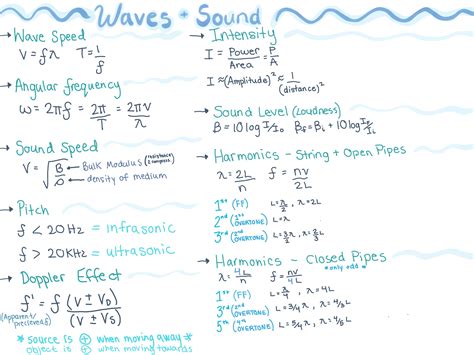 Waves + Sound
→ Wave Speed
V = fλ T = 1/f
→ Angular frequency
ω = 2πf = 2π/T = 2πv/λ
→ Sound Speed
V = √(B/ρ) ← Bulk Modulus
← density of medium
→ Pitch
f < 20Hz = infrasonic
f > 20KHz = ultrasonic
→ Doppler Effect
f' = f (V ± V_D)/(V ± V_S)
(Apparent/
* source is + when moving away *
object is + when moving towards
→ Intensity
I = Power/Area = P/A
I ≈ (Amplitude)² ≈ 1/(distance)²
→ Sound Level (Loudness)
B = 10 log I/I₀ B_f = B_i + 10 log
→ Harmonics - String + Open Pipes
λ = 2L/n f = nv/2L
1st (FF) L = λ/2, λ = 2L
2nd (1st OVERTONE) L = λ
3rd (2nd OVERTONE) L = 3/2 λ, λ = 2/3 L
→ Harmonics - Closed Pipes
*only odd*
λ = 4L/n f = nv/4L
1st (FF) L = λ/4, λ = 4L
3rd (2nd OVERTONE) L = 3/4 λ, λ = 4/3 L
5th (4th OVERTONE) L = 5/4 λ, λ = 4/5 L